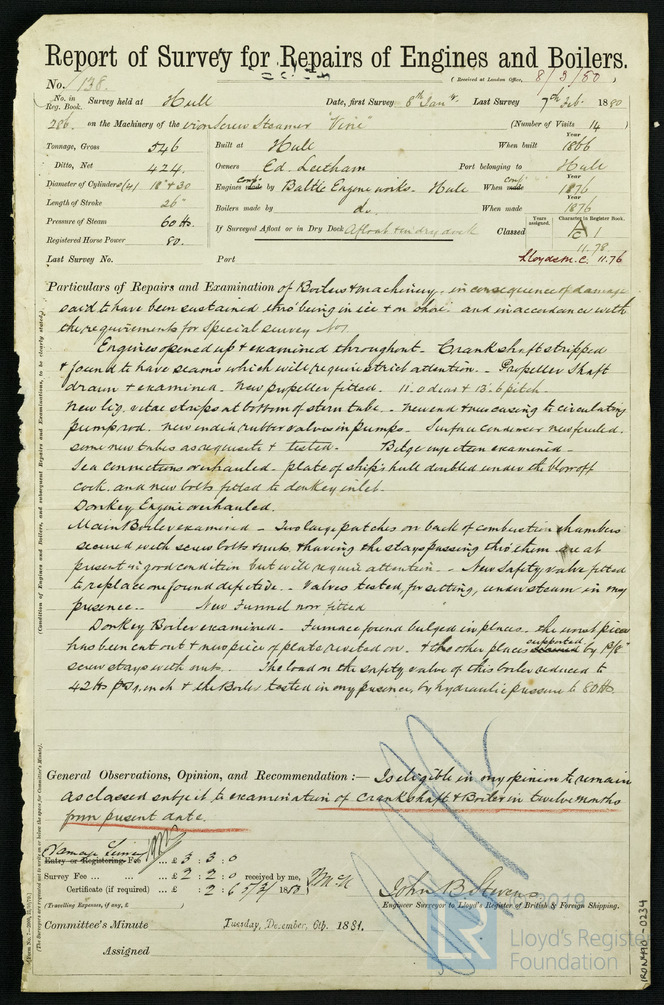 Report of Survey for Repairs of Engines and Boilers.
No. 138. (Received at London Office, 8/3/80)
No. in Reg. Book. Survey held at Hull Date, first Survey 8th Jany. Last Survey 7th Feb 1880
286. on the Machinery of the iron Screw Steamer (Number of Visits 14)
Tonnage, Gross 546 Built at Hull When built Year 1866
Ditto, Net 424. Owners Ed. Leetham Port belonging to Hull
Diameter of Cylinders (4) 18" & 30 Engines made by Baltic Engine works. Hull When made Year 1876
Length of Stroke 26" Boilers made by do. When made 1876
Pressure of Steam 60 lbs. If Surveyed Afloat or in Dry Dock Afloat & in dry dock Classed Years assigned. Character in Register Book. A 1
Registered Horse Power 80. 11.78.
Last Survey No. Port Lloyds M.C. 11.76
Particulars of Repairs and Examination of Boilers & machinery, in consequence of damage
said to have been sustained thro' being in ice & on shore. and in accordance with
the requirements for Special survey No 1
Engines opened up & examined throughout. Crankshaft stripped
& found to have seams which will require strict attention. - Propeller Shaft
drawn & examined. New propeller fitted. 11.0 diar & 13.6 pitch.
New lig. vitae strips at bottom of stern tube. - new end & new casing to circulating
pump rod. new india rubber valves in pumps. Surface condenser new feruled.
some new tubes as requisite & tested. Bilge injection examined -
Sea connections overhauled. plate of ship's hull doubled under the blow off
cock, and new bolts fitted to donkey inlet.
Donkey Engine overhauled.
Main Boiler examined - Two large patches on back of combustion chambers
secured with screw bolts & nuts, & having the stays passing thro' them are at
present in good condition but will require attention. - New Safety valve fitted
to replace one found defective. - Valves tested, for setting, under steam in my
presence. - New Funnel now fitted
Donkey Boiler examined. Furnace found bulged in places. the worst piece
has been cut out & new piece of plate riveted on. & the other places supported by
screw stays with nuts. The load on the safety valve of this boiler reduced to
42 lbs pr Sq. inch & the Boiler tested in my presence, by hydraulic pressure to 80 lbs.
General Observations, Opinion, and Recommendation :— Is eligible in my opinion to remain
as classed subject to examination of Crankshaft & Boiler in twelve months
from present date.
Damage Survey
Entry or Registering Fee ... £ 3 : 3 : 0
Survey Fee ... £ 2 : 2 : 0 received by me,
Certificate (if required) ... £ : 2 : 6 5/3/1880
(Travelling Expenses, if any, £ )
John B. Stevens
Engineer Surveyor to Lloyd's Register of British & Foreign Shipping.
Committee's Minute Tuesday, December, 6th. 1881.
Assigned
2019
LR Lloyd's Register
Foundation